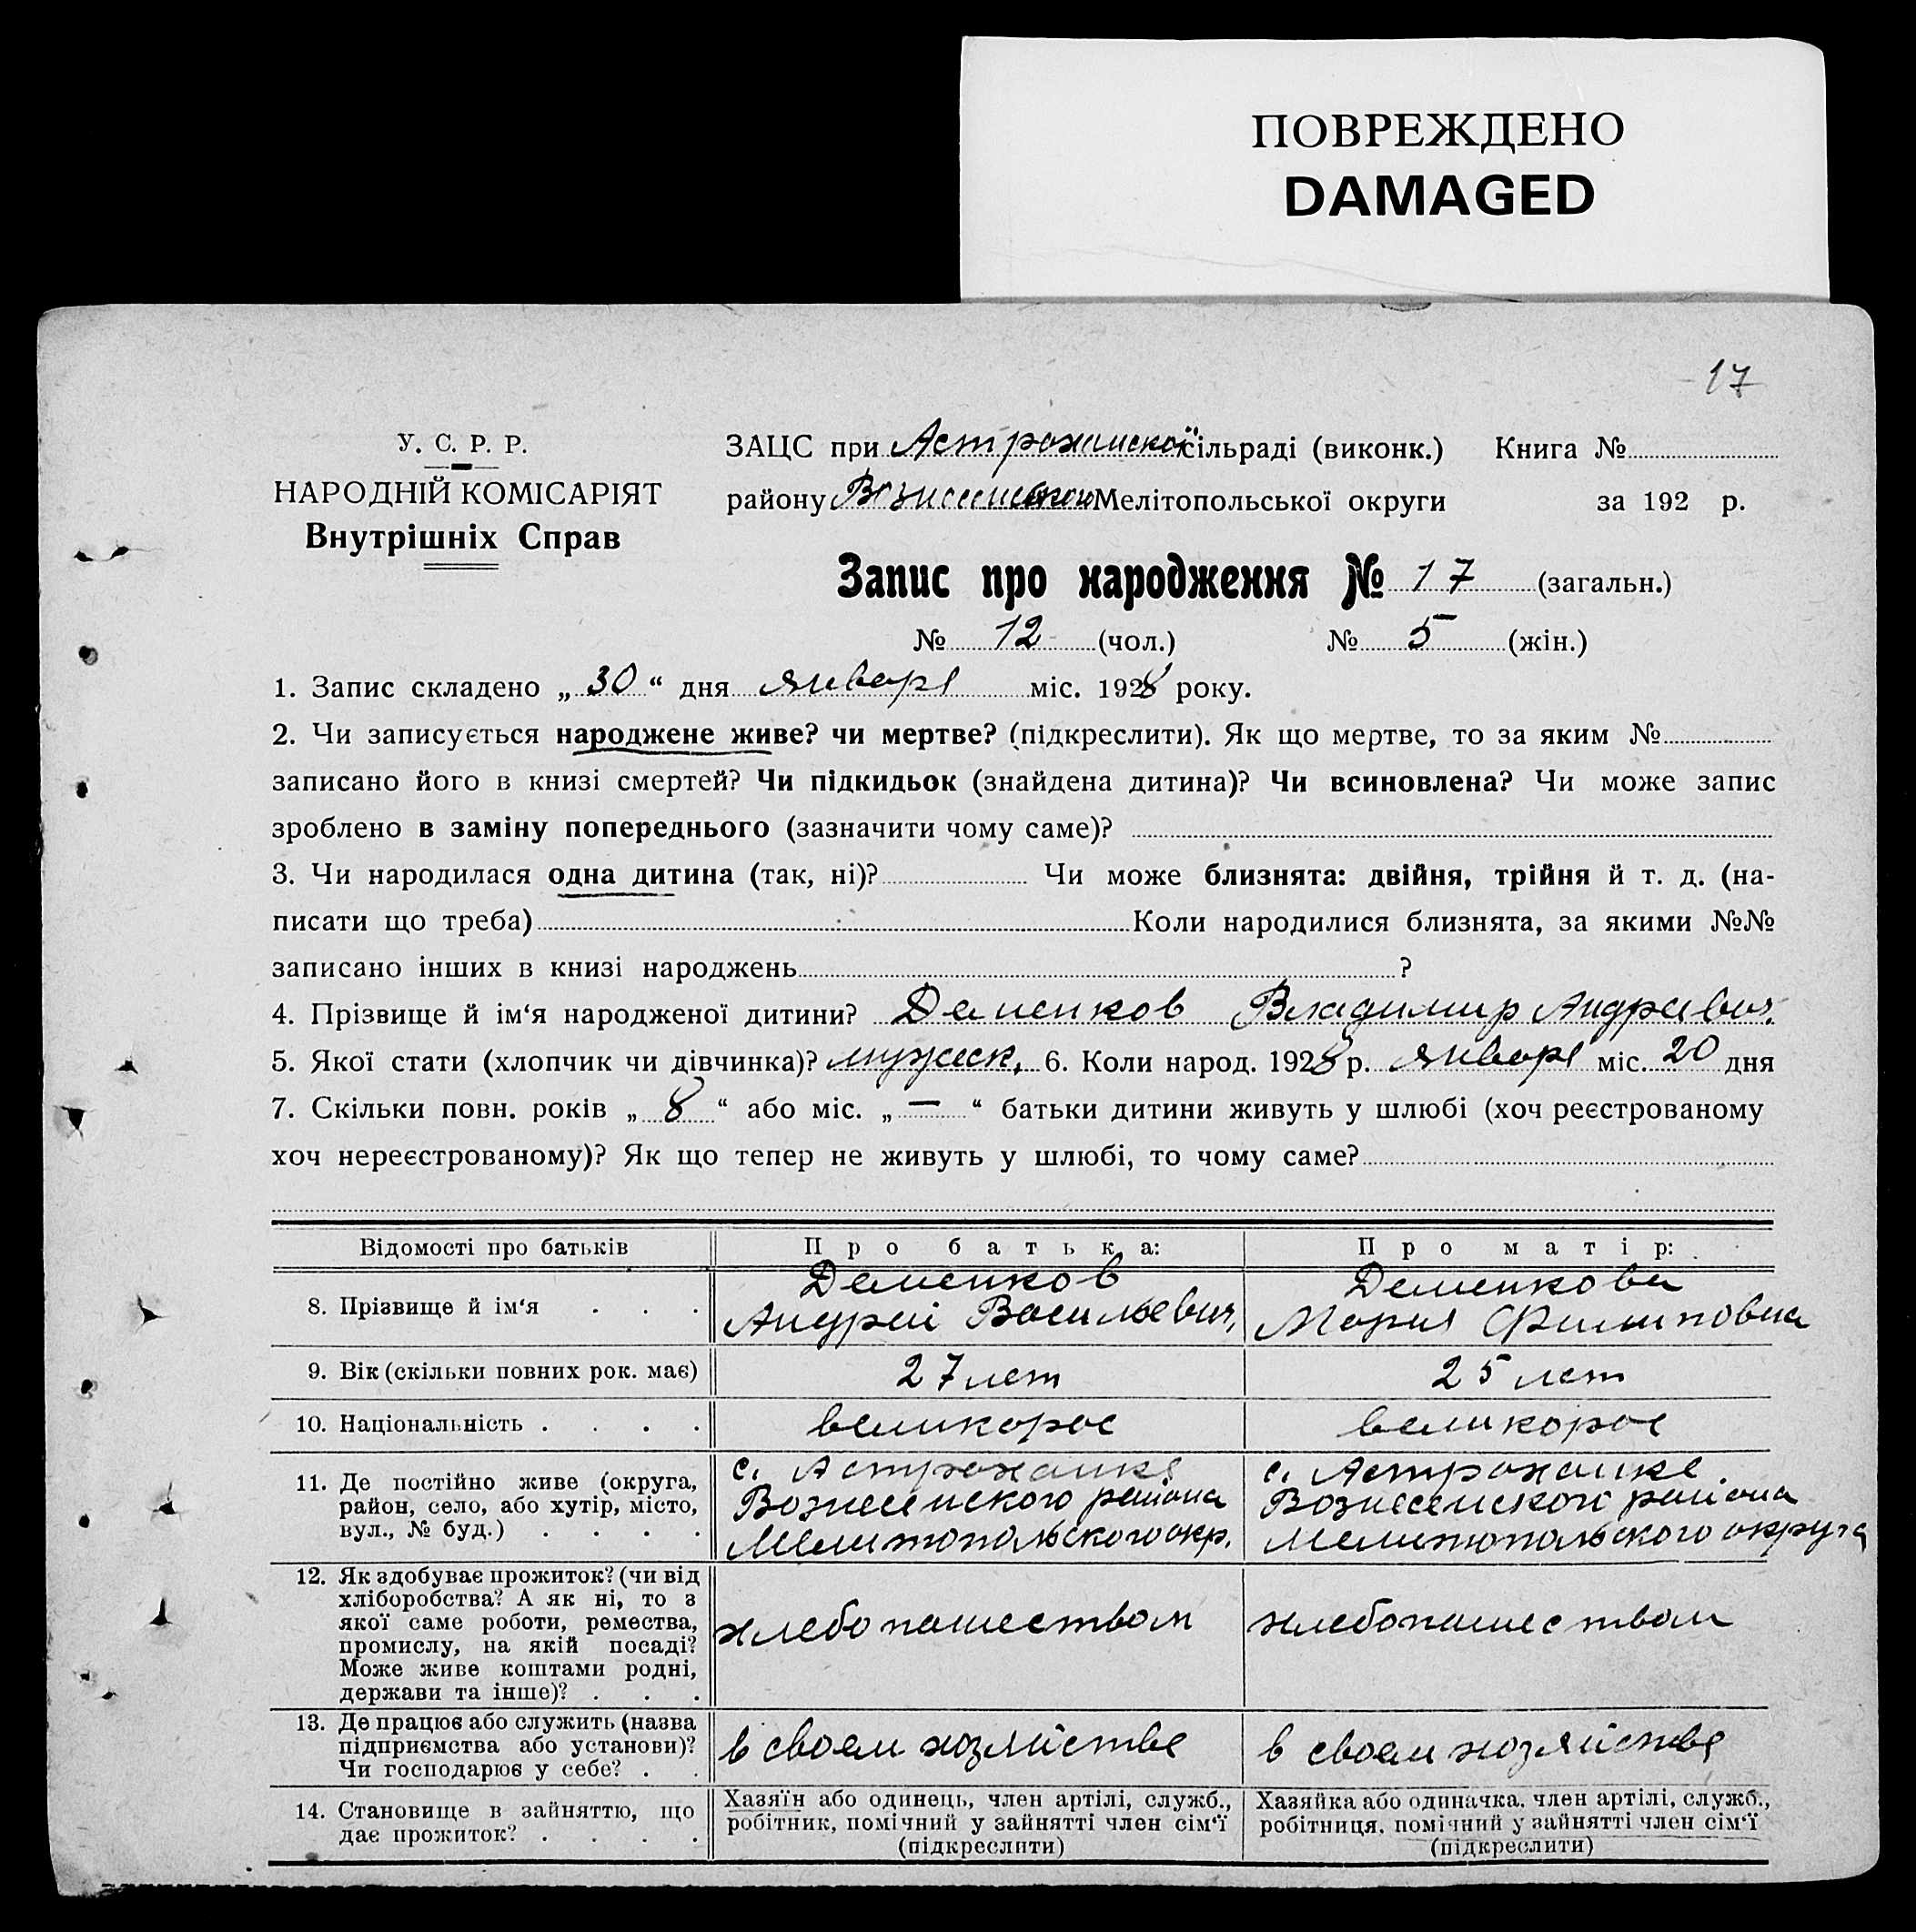 ПОВРЕЖДЕНО
DAMAGED
17
У. С. Р. Р.
НАРОДНІЙ КОМІСАРІЯТ
Внутрішніх Справ
ЗАЦС при Астраханской сільраді (виконк.) Книга №
району Мелітопольської округи за 192 р.
Запис про народження № 17 (загальн.)
№ 12 (чол.) № 5 (жін.)
1. Запис складено „ 30 “ дня января міс. 1928 року.
2. Чи записується народжене живе? чи мертве? (підкреслити). Як що мертве, то за яким №
записано його в книзі смертей? Чи підкидьок (знайдена дитина)? Чи всиновлена? Чи може запис
зроблено в заміну попереднього (зазначити чому саме)?
3. Чи народилася одна дитина (так, ні)? Чи може близнята: двійня, трійня й т. д. (на-
писати що треба) Коли народилися близнята, за якими №№
записано інших в книзі народжень ?
4. Прізвище й ім‘я народженої дитини? Деменков Владимир
5. Якої стати (хлопчик чи дівчинка)? мужеск. 6. Коли народ. 1928 р. января міс. 20 дня
7. Скільки повн. років „ 8 “ або міс. „ — “ батьки дитини живуть у шлюбі (хоч реєстрованому
хоч нереєстрованому)? Як що тепер не живуть у шлюбі, то чому саме?
Відомості про батьків Про батька: Про матір:
8. Прізвище й ім‘я . . . Деменков
Андрей Васильевич,
Деменкова
Мария Филиповна
9. Вік (скільки повних рок. має) 27 лет 25 лет
10. Національність . . . . великорос великорос
11. Де постійно живе (округа,
район, село, або хутір, місто,
вул., № буд.) . . . .
с. Астраханке
Вознесенского района
Мелитопольского окр.
с. Астраханке.
Вознесенского района
Мелитопольского округа
12. Як здобуває прожиток? (чи від
хліборобства? А як ні, то з
якої саме роботи, ремества,
промислу, на якій посаді?
Може живе коштами родні,
держави та інше)? . . .
хлебопашеством
хлебопашеством
13. Де працює або служить (назва
підприємства або установи)?
Чи господарює у себе? . .
в своем хозяйстве
в своем хозяйстве
14. Становище в зайняттю, що
дає прожиток? . . . .
Хазяїн або одинець, член артілі, служб.,
робітник, помічний у зайнятті член сім‘ї
(підкреслити)
Хазяйка або одиначка, член артілі, служб.,
робітниця, помічний у зайнятті член сім‘ї
(підкреслити)